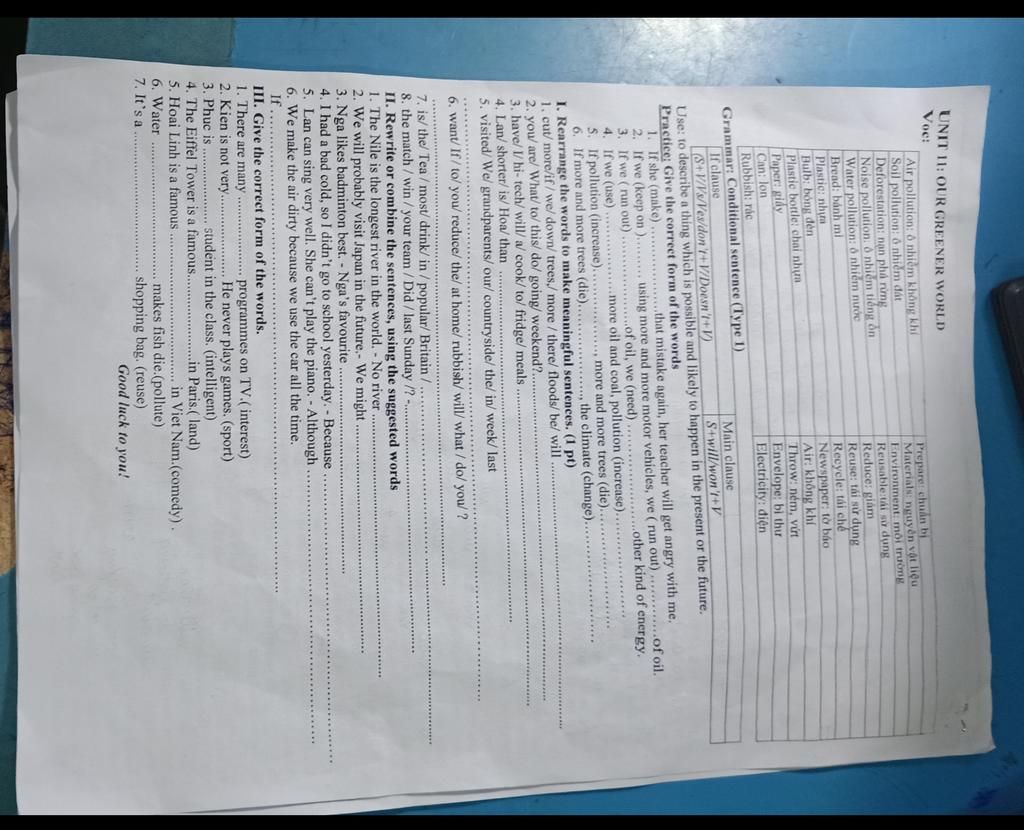 UNIT 11: OUR GREENER WORLD
Voc:
Air pollution: ô nhiễm không khí
Soil pollution: ô nhiễm đất
Deforestation: nạn phá rừng
Noise pollution: ô nhiễm tiếng ồn
Water pollution: ô nhiễm nước
Bread: bánh mì
Plastic: nhựa
Bulb: bóng đèn
Plastic bottle: chai nhựa
Paper: giấy
Can: lon
Rubbish: rác
Prepare: chuẩn bị
Materials: nguyên vật liệu
Environment: môi trường
Reusable: tái sử dụng
Reduce: giảm
Reuse: tái sử dụng
Recycle: tái chế
Newspaper: tờ báo
Air: không khí
Throw: ném, vứt
Envelope: bì thư
Electricity: điện
Grammar: Conditional sentence (Type 1)
If clause Main clause
(S+V/Vs/Ves/don't+V/Doesn't+V) S+will/won't+V
Use: to describe a thing which is possible and likely to happen in the present or the future.
Practice: Give the correct form of the words
1. If she (make) ............that mistake again, her teacher will get angry with me.
2. If we (keep on )............ using more and more motor vehicles, we ( run out) ............of oil.
3. If we ( run out) ............of oil, we (need) ............other kind of energy.
4. If we (use) ............more oil and coal, pollution (increase)............
5. If pollution (increase)............, more and more trees (die)............
6. If more and more trees (die) ............, the climate (change)............
I. Rearrange the words to make meaningful sentences. (1 pt)
1. cut/ more/if / we/ down/ trees,/ more / there/ floods/ be/ will ............
2. you/ are/ What/ to/ this/ do/ going/ weekend?............
3. have/ I/ hi- tech/ will/ a/ cook/ to/ fridge/ meals ............
4. Lan/ shorter/ is/ Hoa/ than ............
5. visited/ We/ grandparents/ our/ countryside/ the/ in/ week/ last
............
6. want/ If/ to/ you/ reduce/ the/ at home/ rubbish/ will/ what / do/ you/ ?
............
7. is/ the/ Tea / most/ drink/ in / popular/ Britain / ............
8. the match / win / your team / Did / last Sunday /? -............
II. Rewrite or combine the sentences, using the suggested words
1. The Nile is the longest river in the world. - No river............
2. We will probably visit Japan in the future.- We might ............
3. Nga likes badminton best. - Nga's favourite ............
4. I had a bad cold, so I didn't go to school yesterday. - Because ............
5. Lan can sing very well. She can't play the piano. - Although ............
6. We make the air dirty because we use the car all the time.
If ............
III. Give the correct form of the words.
1. There are many ............ programmes on TV.( interest)
2. Kien is not very............ He never plays games. (sport)
3. Phuc is ............ student in the class. (intelligent)
4. The Eiffel Tower is a famous............in Paris.( land)
5. Hoai Linh is a famous ............ in Viet Nam.(comedy) .
6. Water ............ makes fish die.(pollute)
7. It's a ............ shopping bag. (reuse)
Good luck to you!